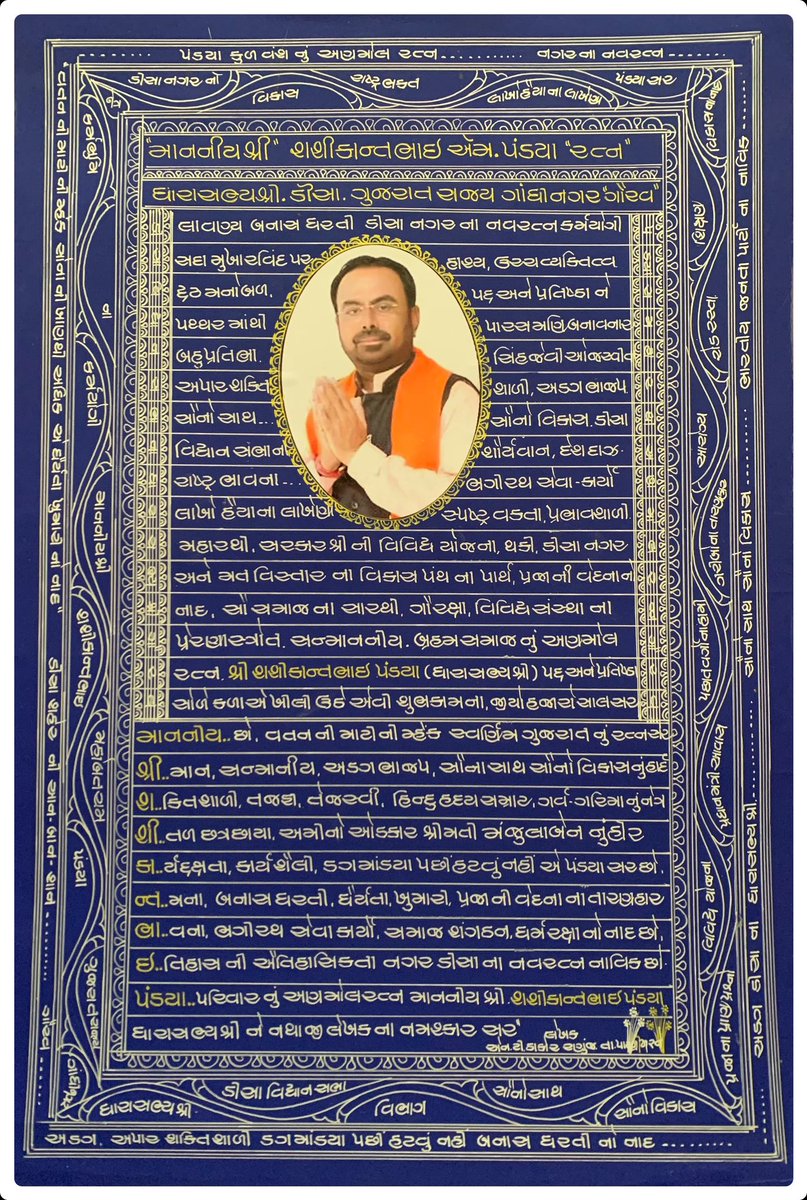 પંડયા કુળ વંશ નું અણમોલ રત્ન ........... નગર ના નવરત્ન .......
ડીસા નગર નો
વિકાસ
રાષ્ટ્ર ભક્ત
લાખો હૈયા ના લાખેણે
પંડયા સર
"માનનીય શ્રી" શશીકાન્તભાઇ એમ. પંડયા "રત્ન"
ધારાસભ્યશ્રી. ડીસા. ગુજરાત રાજય ગાંધીનગર "ગૌરવ"
લાવણ્ય બનાસ ધરતી ડીસા નગર ના નવરત્ન કર્મયોગી
સદા મુખારવિંદ પર હાશ્ય, ઉચ્ચ વ્યક્તિત્વ
દ્રઢ મનોબળ. પદ અને પ્રતિષ્ઠા ને
પથ્થર માંથી પારસમણિ બનાવનાર
બહુ પ્રતિભા. સિંહ જેવી ઓજસ્વીત
અપાર શક્તિ શાળી, અડગ ભાજપ
સૌનો સાથ... સૌનો વિકાસ. ડીસા
વિધાન સભાની શૌર્યવાન, દેશ દાઝ
રાષ્ટ્ર ભાવના... ભગીરથ સેવા-કાર્યો
લાખો હૈયા ના લાખેણે સ્પષ્ટ્ર વકતા, પ્રભાવશાળી
મહારથી, સરકાર શ્રી ની વિવિધ યોજના, થકી, ડીસા નગર
અને મત વિસ્તાર ના વિકાસ પંથ ના પાર્થ, પ્રજા ની વંદના નો
નાદ, સૌ સમાજ ના સારથી, ગૌરક્ષા, વિવિધ સંસ્થા ના
પ્રેરણાસ્ત્રોત. સન્માનનીય. બ્રહમ સમાજ નું અણમોલ
રત્ન. શ્રી શશીકાન્તભાઇ પંડયા (ધારાસભ્ય શ્રી) પદ અને પ્રતિષ્ઠા
સોળે કળા એ ખીલી ઉઠે એવી શુભકામના, જીયો હજારો સાલ સર
માનનીય.. છો, વતન ની માટી ની મ્હેંક સ્વર્ણિમ ગુજરાત નું રત્ન સર
શ્રી.. માન, સન્માનીય, અડગ ભાજપ, સૌના સાથ સૌનો વિકાસ નુંહાર્દ
શ.. કિતશાળી, તજજ્ઞ, તેજસ્વી, હિન્દુ હ્રદય સમ્રાટ, ગર્વ-ગરિમા નુંનેત્ર
શી.. તળ છત્રછાયા, અમીનો ઓડકાર શ્રીમતી મંજુલાબેન નુંહીર
કા.. ર્યદક્ષતા, કાર્ય શૈલી, ડગ માંડયા પછી હટવું નહીં એ પંડયા સર છો.
ન્ત.. મના, બનાસ ધરતી, ધૈર્યતા, ખુમારી, પ્રજા ની વંદના ના તારણહાર
ભા.. વના, ભગીરથ સેવા કાર્યો, સમાજ શંગઠન, ધર્મરક્ષા નો નાદ છો,
ઇ.. તિહાસ ની ઐતિહાસિકતા નગર ડીસા ના નવરત્ન નાવિક છો
પંડયા.. પરિવાર નું અણમોલરત્ન માનનીય શ્રી. શશીકાન્તભાઇ પંડયા
ધારાસભ્ય શ્રી ને નથાજી લેખક ના નમસ્કાર સર" લેખક
એન.ટી.ઠાકોર
"વતન ની માટી ની મ્હેક સોના ની ખાણથી અધિક એ ધરતી ની ખુમારી નો નાદ"
ડીસા શહેર ની આન-બાન-શાન
નેત્ર
કર્મભૂમિ
ના
કર્મયોગી
માનનીયશ્રી
શશીકાન્તભાઇ
પંડયા
ગુજરાત રાજય
શિક્ષણ
રોડ રસ્તા.
આરોગ્ય
પછાત વર્ગો નાહામી
પ્રધાન મંત્રી આવાસ
વિવિધ યોજના
પ્રજા ના પ્રાણ પ્રશ્નો
ભારતીય જનતા પાર્ટી ના નાવિક
સૌનો સાથ સૌનો વિકાસ
અડગ ડીસા ના ધારાસભ્ય શ્રી.
ધારાસભ્ય શ્રી.
ડીસા વિધાન સભા
વિભાગ
સૌનો સાથ
સૌનો વિકાસ
અડગ. અપાર શક્તિ શાળી ડગ માંડયા પછી હટવું નહી બનાસ ધરતી નો નાદ ..........